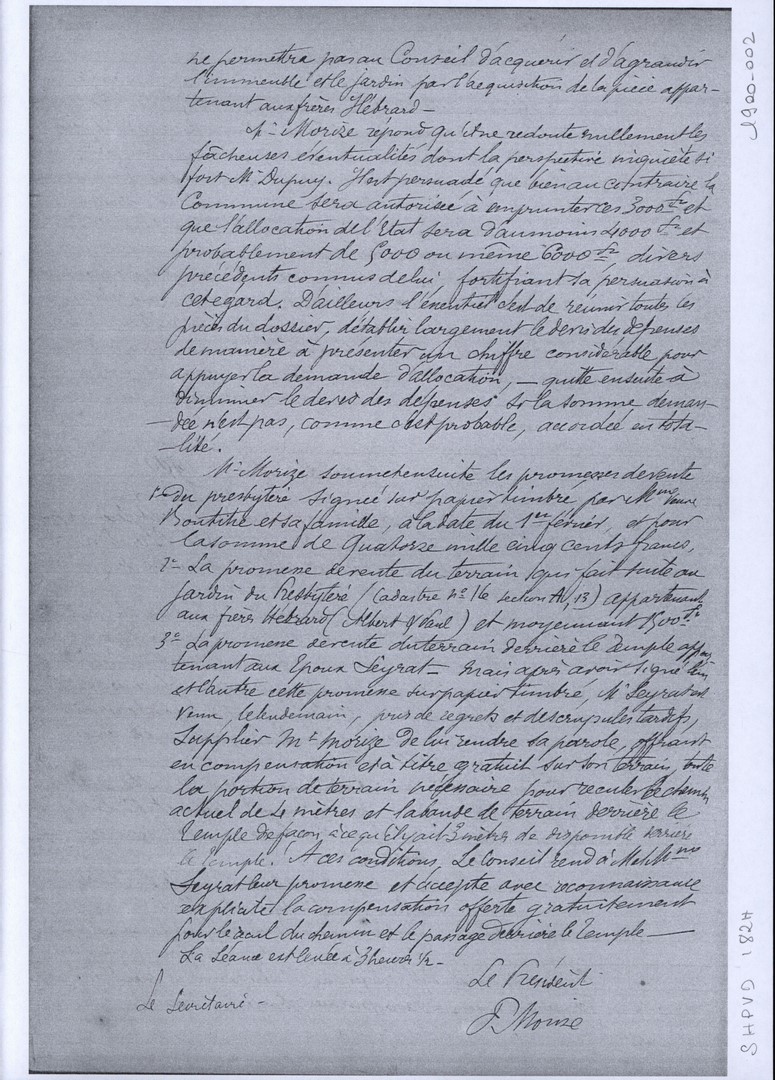 ne permettra pas au Conseil d'acquérir et d'agrandir
l'immeuble et le jardin par l'acquisition de la pièce appar-
tenant aux frères Hébrard—
Mr Morize répond qu'il ne redoute nullement les
fâcheuses éventualités dont la perspective inquiète si
fort Mr Dupuy. Il est persuadé que bien au contraire la
Commune sera autorisée à emprunter ces 3000 fr et
que l'allocation de l'Etat sera d'au moins 4000 fr et
probablement de 5000 ou même 6000 fr divers
précédents connus de lui, fortifiant sa persuasion à
cet égard. D'ailleurs l'essentiel c'est de réunir toutes les
pièces du dossier, d'établir largement le devis des dépenses
de manière à présenter un chiffre considérable pour
appuyer la demande d'allocation, — quitte ensuite à
diminuer le devis des dépenses si la somme deman-
-dée n'est pas, comme c'est probable, accordée en tota-
-lité.
Mr Morize soumet ensuite les promesses de vente
1° Du presbytère signée sur papier timbré par Mme Veuve
et sa famille, à la date du 1er février, et pour
la somme de Quatorze mille cinq cents francs,
2° La promesse de vente du terrain qui fait suite au
jardin du Presbytère (Cadastre No section A, 13) appartenant
aux frères Hébrard (Albert & Paul) et moyennant 1500 fr
3° La promesse de vente du terrain derrière le Temple appar
tenant aux Epoux Seyrat— mais après avoir signé l'un
et l'autre cette promesse sur papier timbré, Mr Seyrat est
venu, le lendemain, pris de regrets et de scrupules tardifs,
supplier Mr Morize de lui rendre sa parole, offrant
en compensation et à titre gratuit sur son terrain, toute
la portion de terrain nécessaire pour reculer le chemin
actuel de 4 mètres et la bande de terrain derrière le
Temple de façon à ce qu'il y ait 3 mètres de disponible derrière
le temple. A ces conditions, Le Conseil rend à M et Mme
Seyrat leur promesse et accepte avec reconnaissance
explicite la compensation offerte gratuitement
pour le recul du chemin et le passage derrière le Temple —
La Séance est levée à 3 heures 1/2 —
Le Président
Le Secrétaire —
Morize
1900-002
SHPVD 1824